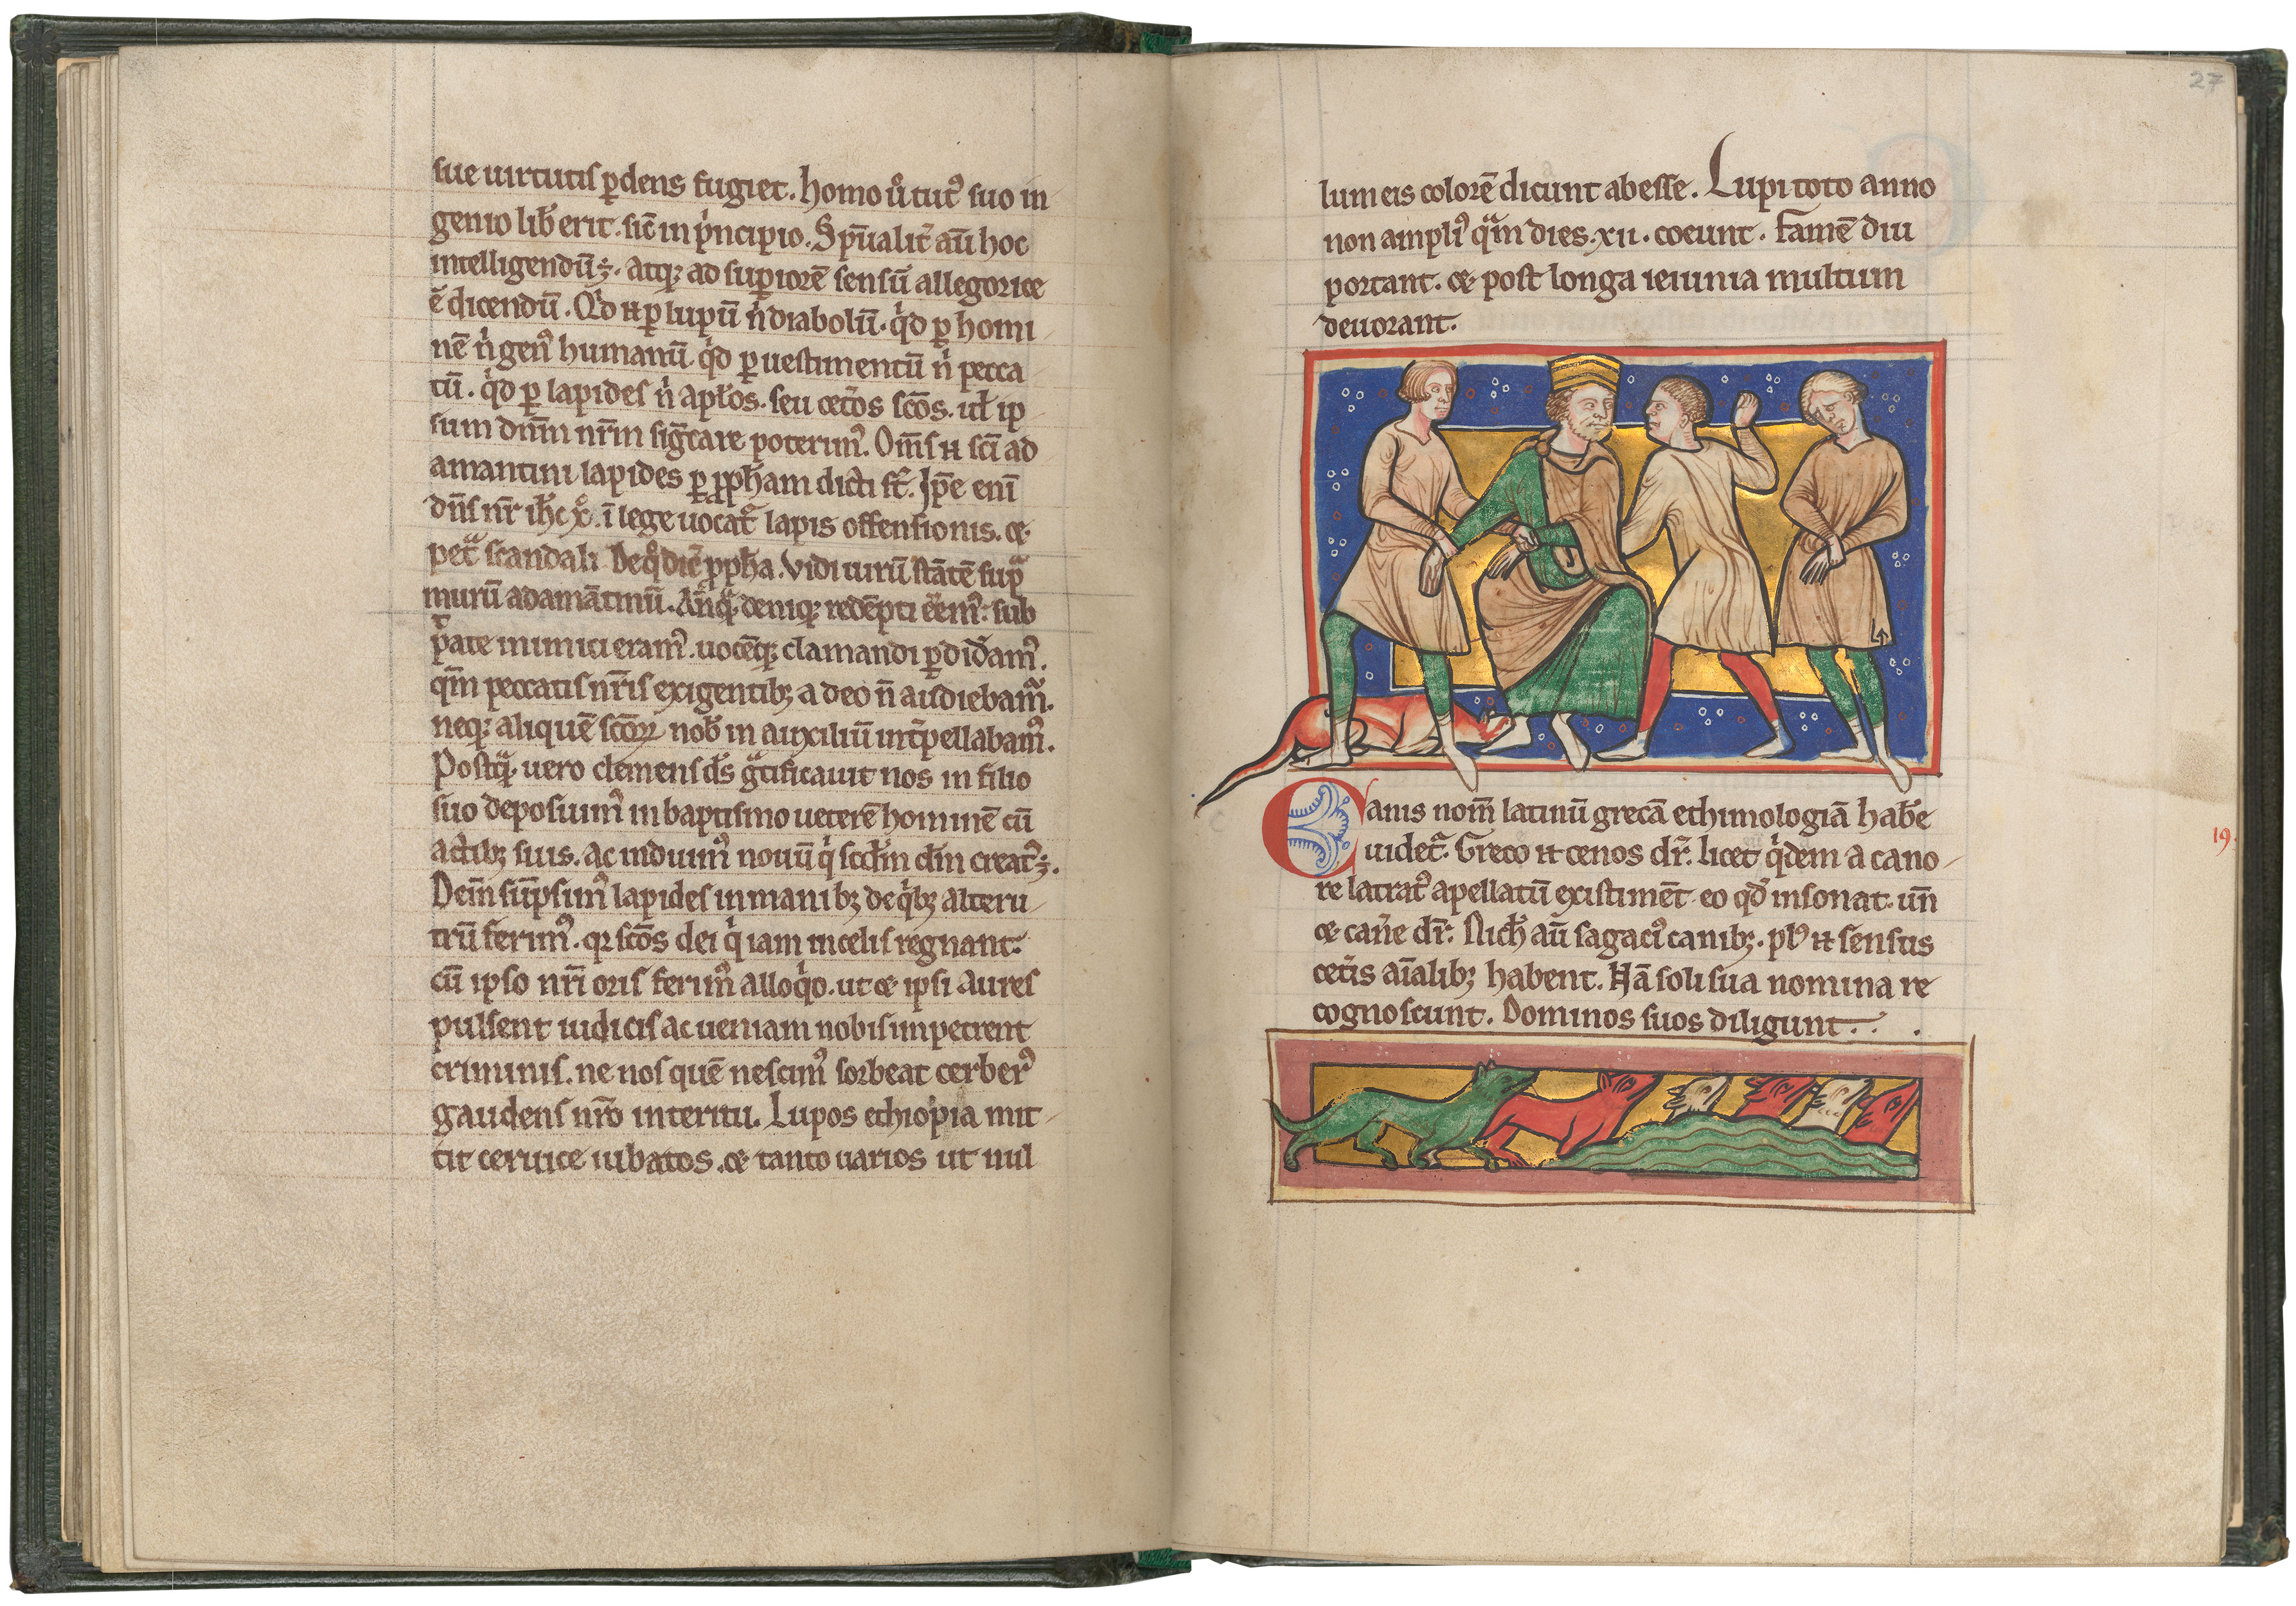 sue uirtutis ꝑdens fugiet. homo u᷒o tut᷒ suo in
genio lib̄ erit. sic̄ in pͥncipio. Sp̄ualit̄ aū hoc
intelligendū ÷. atq; ad suꝑiorē sensū allegorice
ē dicendū. Qͥd n ꝑ lupū nͥ diabolū. qͥd ꝑ homi
nē nͥ gen᷒ humanū. qͥd ꝑ uestimentū nͥ pecca
tū. qͥd ꝑ lapides nͥ apl̄os. seu cet̄os sc̄os. ul̄ ip
sum dn̄m nr̄m siḡcare poterim᷒. Om̄s n sc̄i ad
amantini lapides ꝑ ꝓph̄am dicti st̄. Ip̄e eni
dn̄s nr̄ ih̄c xͦ. ī lege uocat᷒ lapis offensionis. &
petͣ scandali. De qͦ dic̄ ꝓph̄a. Vidi uirū stātē supͣ
murū adamātinū. An̄qͣ deniq; redēpti eēm᷒. sub
pͥate inimici eram᷒. uocēq; clamandi ꝑdid̄am᷒.
qm̄ peccatis nr̄is exigentib; a deo n̄ audiebam᷒.
neq; aliquē sc̄oꝝ nob̄ in auxiliū int̄pellabam᷒.
Postqͣ uero clemens ds̄ gͣtificauit nos in filio
suo deposuim᷒ in baptismo ueterē hominē cū
actib; suis. ac induim᷒ nouū qͥ scd̄m dm̄ creat᷒ ÷.
Dein̄ sūpsim᷒ lapides in manib; de qͥb; alteru
trū ferim᷒. qꝛ sc̄os dei qͥ iam in celis regnant.
cū ipso nr̄i oris ferim᷒ alloqͥo. ut & ipsi aures
pulsent iudicis ac ueniam nobis impetrent
criminis. ne nos quē nescim᷒ sorbeat cerber᷒
gaudens nr̄o interitu. Lupos ethiopia mit
tit ceruice iubatos. & tanto uarios ut nul
27
lum eis colorē dicunt abesse. Lupi toto anno
non ampli᷒ qͣm dies .xii. coeunt. Famē diu
portant. & post longa ieiunia multum
deuorant.
Canis nom̄ latinū grecā ethimologiā hab̄e
uidet᷒. Greco n cenos dr̄. licet qͥdem a cano
re latrat᷒ apellatū existimēt eo qd̄ insonat. un̄
& can̄e dr̄. Nich̄ aū sagaci᷒ canib;. pl᷒ n sensus
cet̄is aīalib; habent. Nā soli sua nomina re
cognoscunt. Dominos suos diligunt.
19.